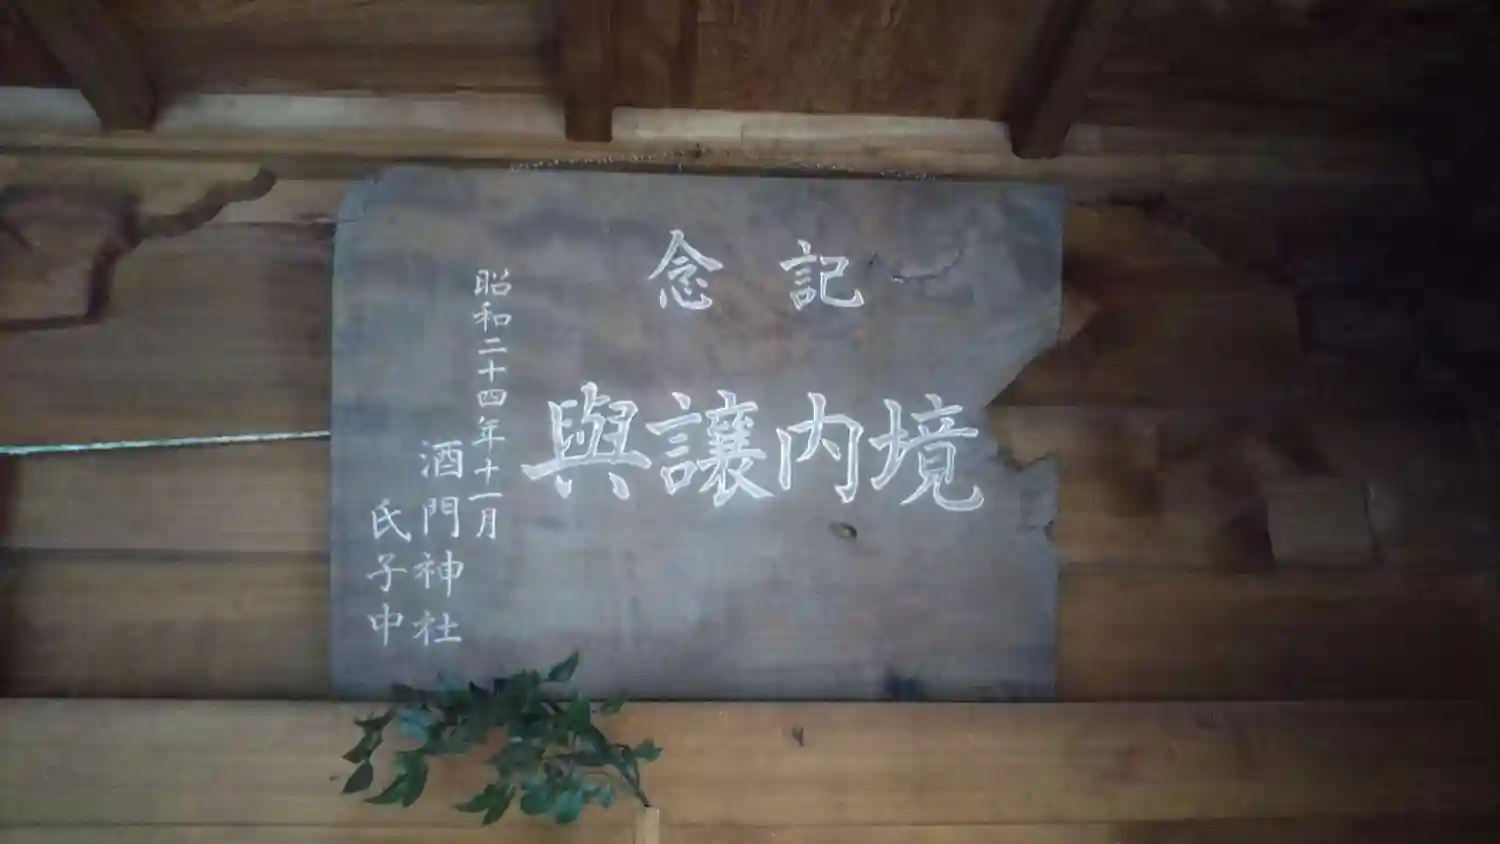 記念
境内譲與
昭和二十四年十一月
酒門神社
氏子中